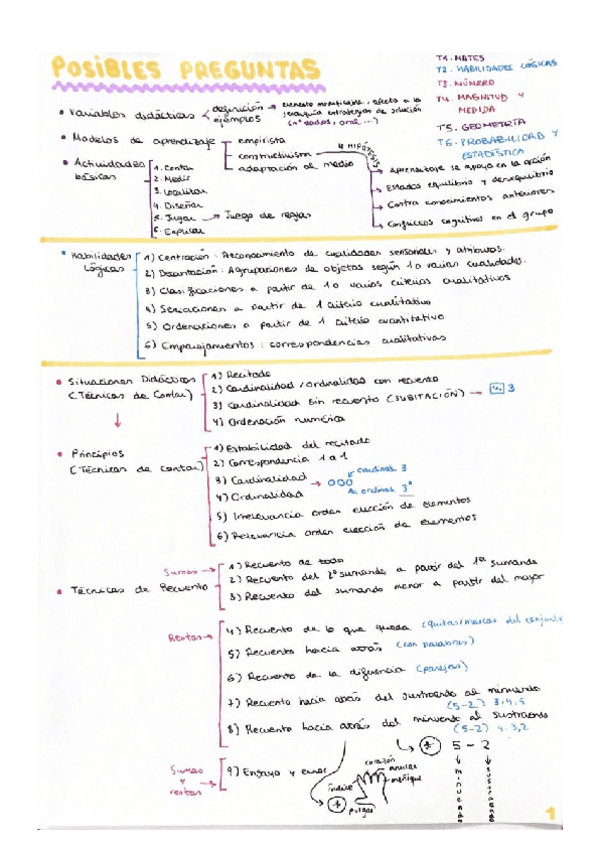 POSIBLES PREGUNTAS
T1. MATES
T2. HABILIDADES LÓGICAS
T3. NÚMERO
T4. MAGNITUD Y MEDIDA
T5. GEOMETRÍA
T6. PROBABILIDAD Y ESTADÍSTICA
• Variables didácticas
definición → elemento modificable, afecta a la jerarquía estrategias de solución
ejemplos (nº dados, orse...)
• Modelos de aprendizaje
empirista
constructivism
adaptación al medio
4 HIPÓTESIS
Aprendizaje se apoya en la acción
Estados equilibrio y desequilibrio
Contra conocimientos anteriores
Conflictos cognitivos en el grupo
• Actividades básicas
1. Contar
2. Medir
3. Localizar
4. Diseñar
5. Jugar → Juego de reglas
6. Explicar
• Habilidades Lógicas
1) Centración: Reconocimiento de cualidades sensoriales y atributos.
2) Decantación: Agrupaciones de objetos según 1 o varias cualidades.
3) Clasificaciones a partir de 1 o varios criterios cualitativos
4) Seriaciones a partir de 1 criterio cualitativo
5) Ordenaciones a partir de 1 criterio cuantitativo
6) Emparejamientos: correspondencias cualitativas
• Situaciones Didácticas (Técnicas de Contar)
1) Recitado
2) Cardinalidad/ordinalidad con recuento
3) Cardinalidad sin recuento (SUBITACIÓN) → 3
4) Ordenación numérica
• Principios (Técnicas de contar)
1) Estabilidad del recitado
2) Correspondencia 1 a 1
3) Cardinalidad
4) Ordinalidad
cardinal 3
ordinal 3º
5) Irrelevancia orden elección de elementos
6) Relevancia orden elección de elementos
• Técnicas de Recuento
Sumas →
1) Recuento de todo
2) Recuento del 2º sumando a partir del 1º sumando
3) Recuento del sumando menor a partir del mayor
Restas →
4) Recuento de lo que queda (quitas/marcas del conjunto
5) Recuento hacia atrás (con palabras)
6) Recuento de la diferencia (parejas)
7) Recuento hacia atrás del sustraendo al minuendo
(5-2) 3,4,5
8) Recuento hacia atrás del minuendo al sustraendo
(5-2) 4,3,2
Sumas y restas →
9) Ensayo y error
5 - 2
minuendo
sustraendo
corazón
anular
meñique
índice
pulgar
1